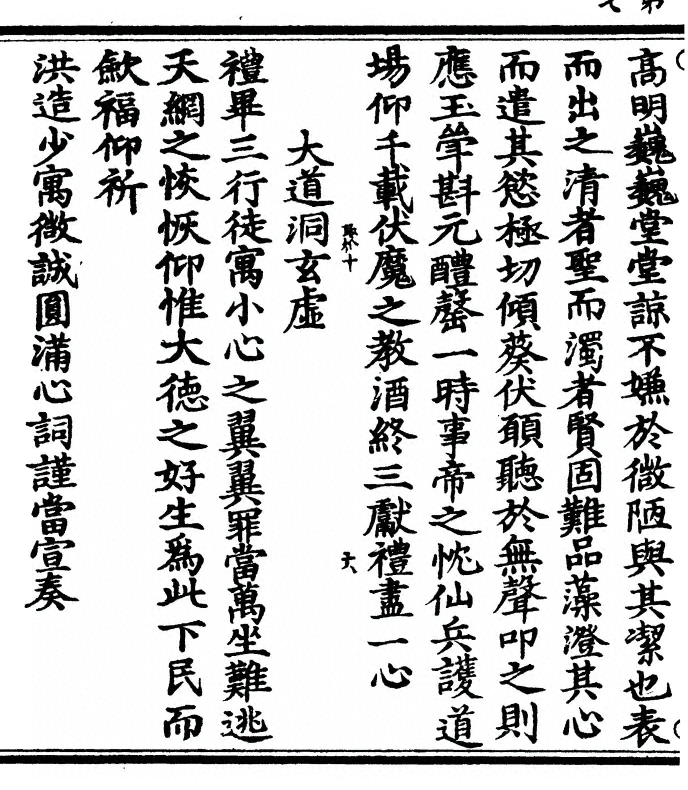 高明巍巍堂堂諒不嫌於微陋與其潔也表
而出之清者聖而濁者賢固難品藻澄其心
而遣其慾極切傾葵伏願聽於無聲叩之則
應玉斝斟元醴罄一時事帝之忱仙兵護道
場仰千載伏魔之教酒終三獻禮盡一心
大道洞玄虛
禮畢三行徒寓小心之翼翼罪當萬坐難逃
天網之恢恢仰惟大德之好生為此下民而
歛福仰祈
洪造少寓微誠圓滿心詞謹當宣奏